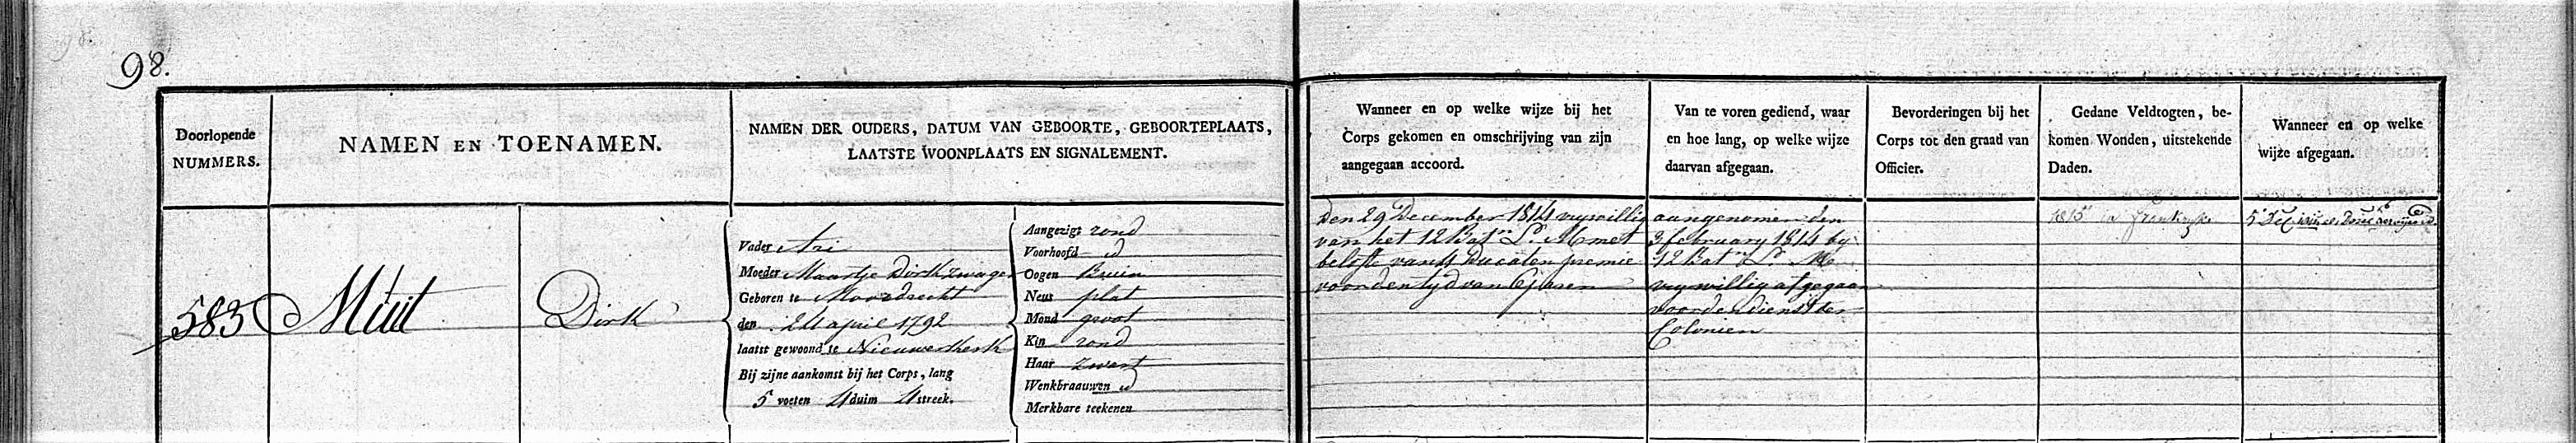 98.
Doorlopende
NUMMERS.
NAMEN EN TOENAMEN.
NAMEN DER OUDERS, DATUM VAN GEBOORTE, GEBOORTEPLAATS,
LAATSTE WOONPLAATS EN SIGNALEMENT.
Wanneer en op welke wijze bij het
Corps gekomen en omschrijving van zijn
aangegaan accoord.
Van te voren gediend, waar
en hoe lang, op welke wijze
daarvan afgegaan.
Bevorderingen bij het
Corps tot den graad van
Officier.
Gedane Veldtogten, be-
komen Wonden, uitstekende
Daden.
Wanneer en op welke
wijze afgegaan.
583
Muit
Dirk
Vader Ari
Moeder Maartje Dirkzwager
Geboren te Moordrecht
den 24 april 1792
laatst gewoond te Nieuwerkerk
Bij zijne aankomst bij het Corps, lang
5 voeten 4 duim 4 streek.
Aangezigt rond
Voorhoofd id
Oogen Bruin
Neus plat
Mond groot
Kin rond
Haar zwart
Wenkbraauwen id
Merkbare teekenen
den 29 December 1814 vrywillig
van het 12 Batn Lt. M met
belofte van 4 Ducaten premie
voor den tyd van 6 Jaren
aangenomen den
3 february 1814 by
12 Batn Lt. M
vrywillig afgegaan
voor de dienst der
Colonien
1815 in Frankryk
5 Dec